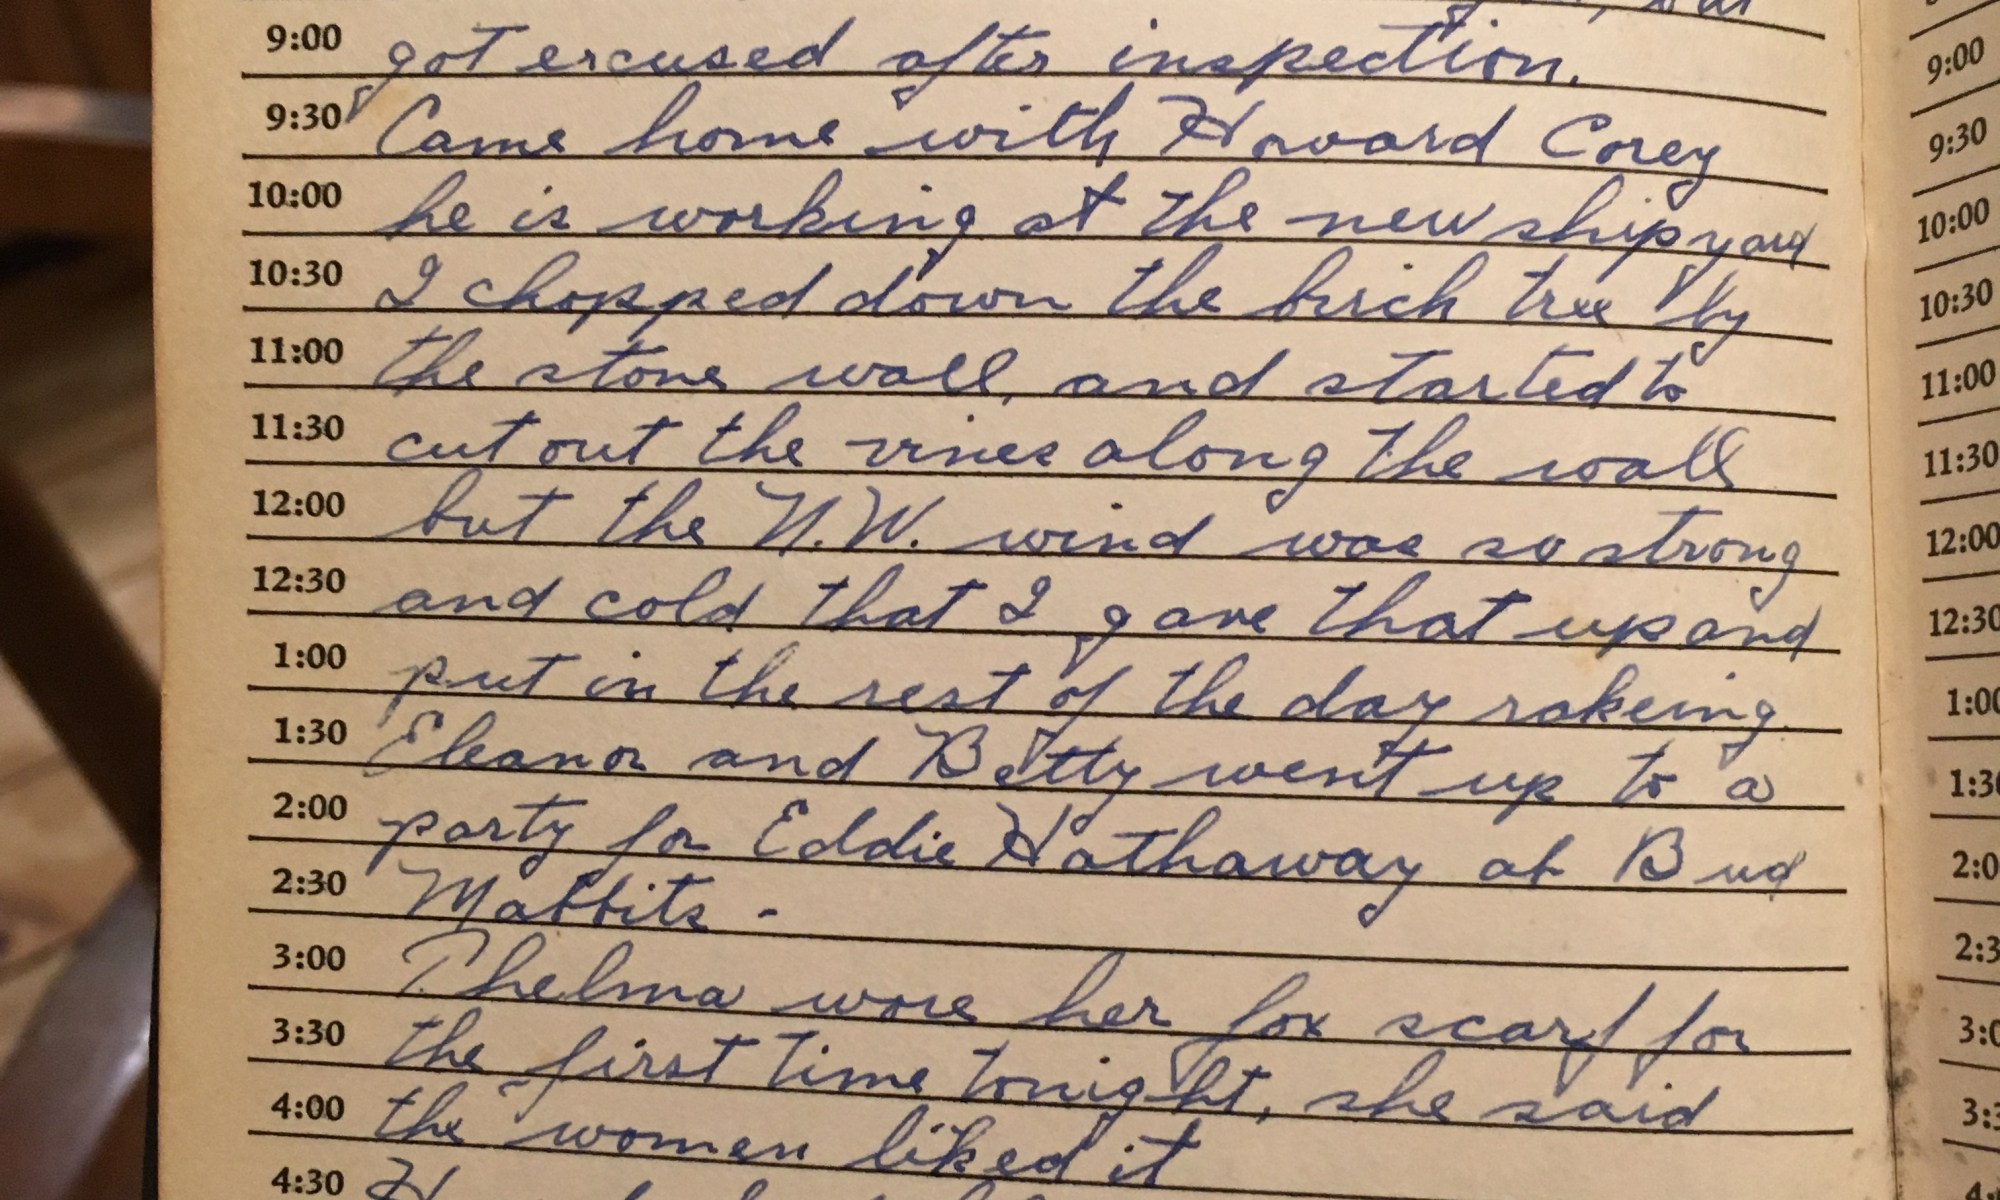 9:00 got excused after inspection. 9:00
9:30 Came home with Howard Corey 9:30
10:00 he is working at the new shipyard 10:00
10:30 I chopped down the birch tree by 10:30
11:00 the stone wall, and started to 11:00
11:30 cut out the vines along the wall 11:30
12:00 but the N.W. wind was so strong 12:00
12:30 and cold that I gave that up and 12:30
1:00 put in the rest of the day rakeing 1:00
1:30 Eleanor and Betty went up to a 1:30
2:00 party for Eddie Hathaway at Bud 2:0
2:30 Mabbits - 2:3
3:00 Thelma wore her fox scarf for 3:0
3:30 the first time tonight, she said 3:3
4:00 the women liked it
4:30